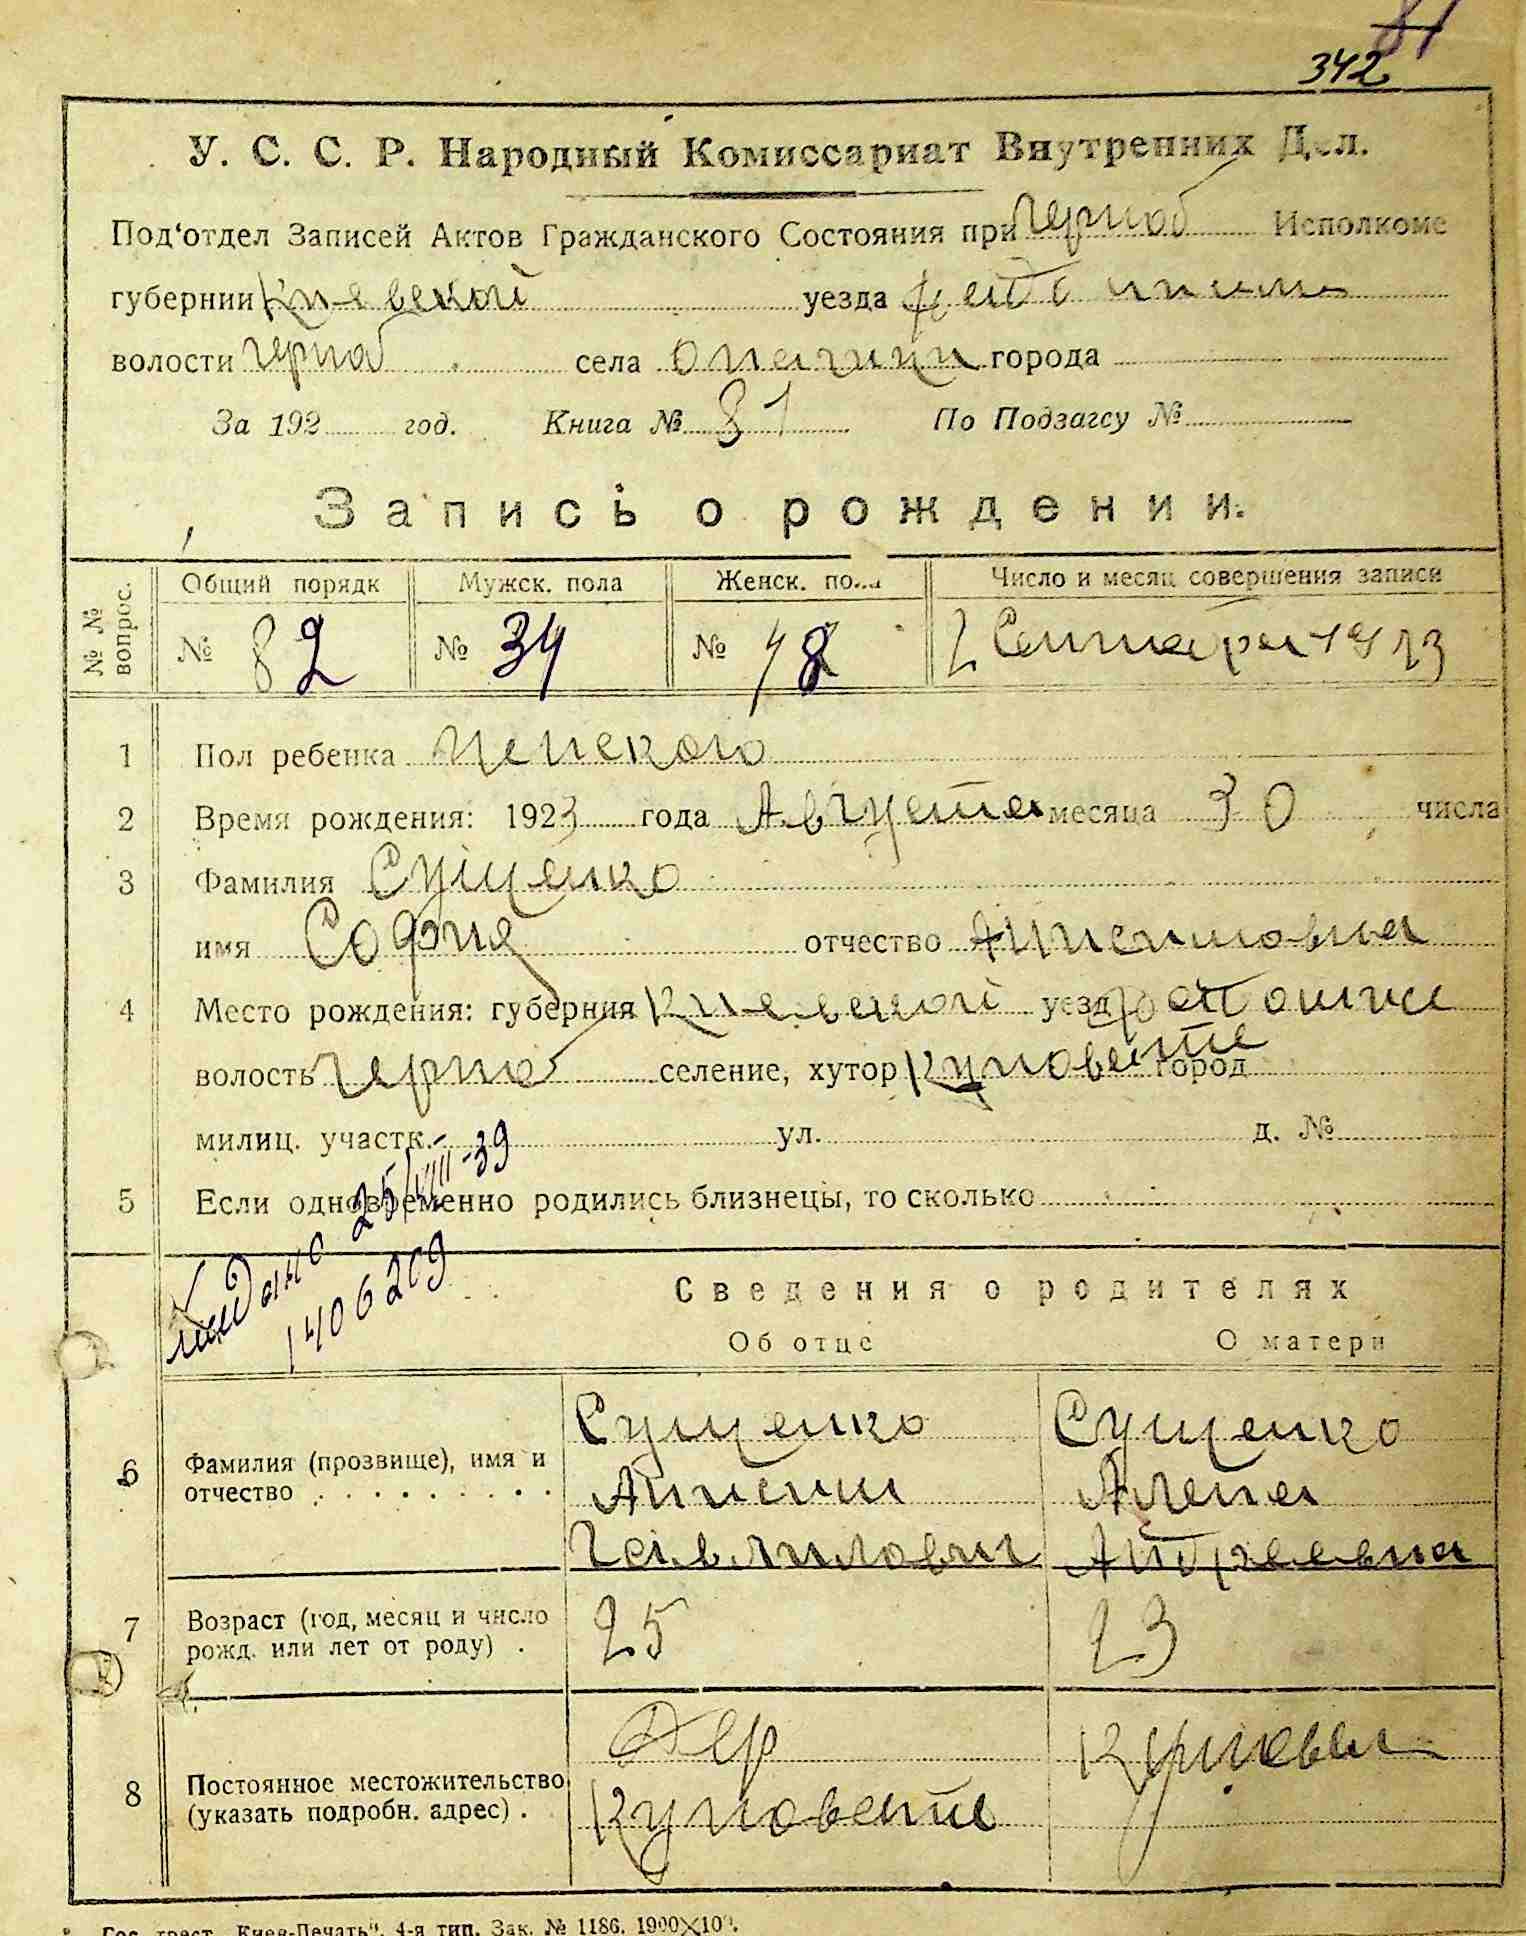 81
342
У. С. С. Р. Народный Комиссариат Внутренних Дел.
Под‘отдел Записей Актов Гражданского Состояния при Черноб Исполкоме
губернии Киевской уезда
волости Черноб села Опачичи города
За 192 год. Книга № 81 По Подзагсу №
Запись о рождении.
№ № вопрос. Общий порядк Мужск. пола Женск. пола Число и месяц совершения записи
№ 82 № 34 № 48 2 Сентября 1923
1 Пол ребенка женского
2 Время рождения: 1923 года Августа месяца 30 числа
3 Фамилия Сущенко
имя София отчество
4 Место рождения: губерния Киевской уезд
волость Черноб селение, хутор город
милиц. участк. ул. д. №
5 Если одновременно родились близнецы, то сколько
видано 25/VIII-39
1406209
Сведения о родителях
Об отце О матери
6 Фамилия (прозвище), имя и отчество
Сущенко Сущенко
Алена
Андреевна
7 Возраст (год, месяц и число рожд. или лет от роду) . 25 23
8 Постоянное местожительство (указать подробн. адрес) .
Дер
Гос. трест „Киев-Печать“, 4-я тип. Зак. № 1186. 1900×100.